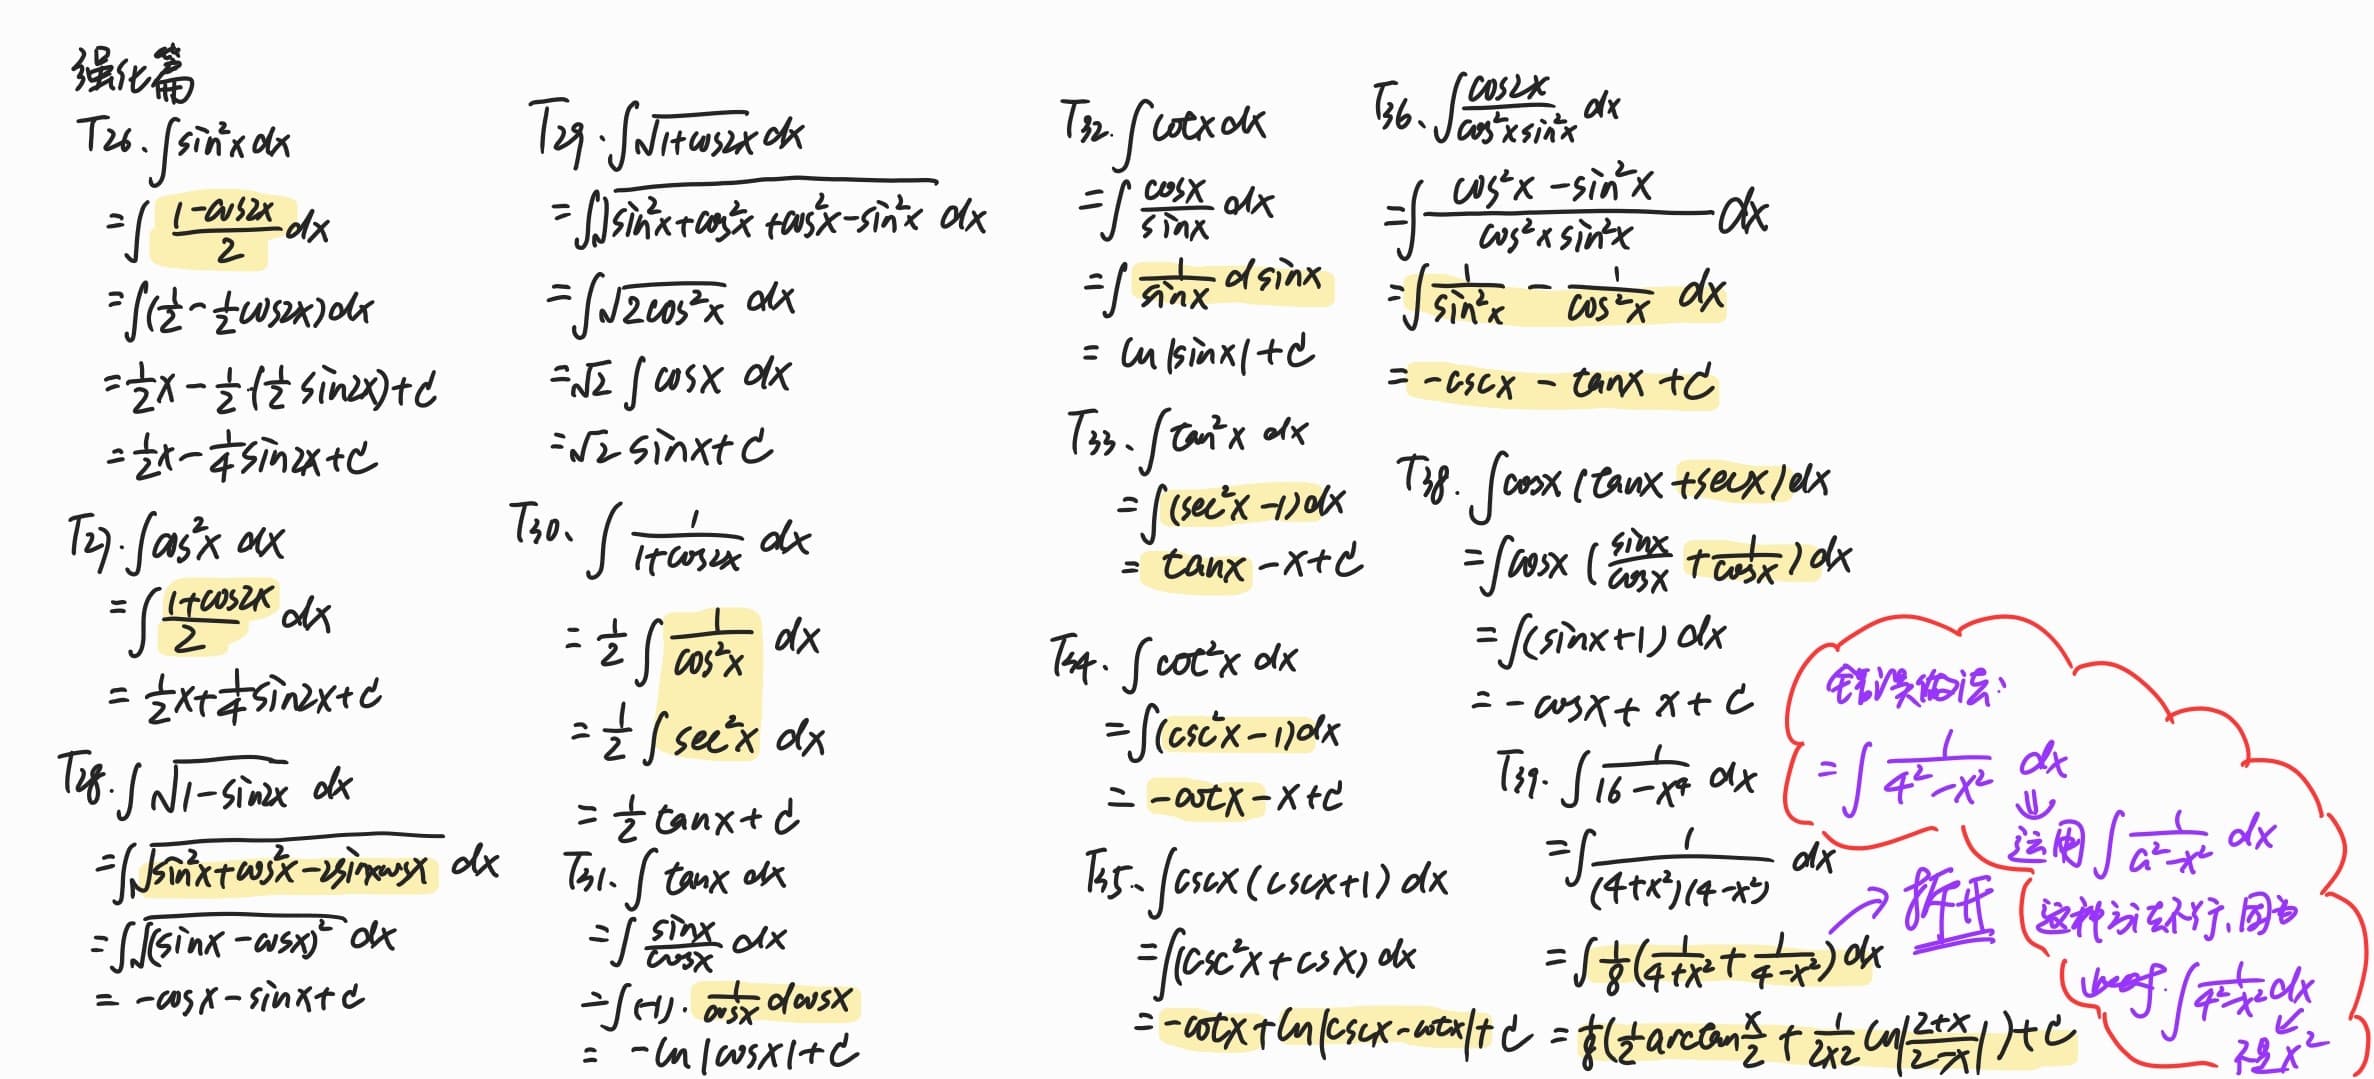 强化篇
T26. ∫sin²x dx
=∫(1-cos2x)/2 dx
=∫(1/2-1/2cos2x)dx
=1/2x-1/2·(1/2 sin2x)+C
=1/2x-1/4sin2x+C
T27. ∫cos²x dx
=∫(1+cos2x)/2 dx
=1/2x+1/4sin2x+C
T28. ∫√(1-sin2x) dx
=∫√(sin²x+cos²x-2sinxcosx) dx
=∫√((sinx-cosx)²) dx
=-cosx-sinx+C
T29. ∫√(1+cos2x) dx
=∫√(sin²x+cos²x+cos²x-sin²x) dx
=∫√(2cos²x) dx
=√2 ∫cosx dx
=√2 sinx+C
T30. ∫1/(1+cos2x) dx
=1/2 ∫1/cos²x dx
=1/2 ∫sec²x dx
=1/2 tanx+C
T31. ∫tanx dx
=∫sinx/cosx dx
=∫(-1)·1/cosx dcosx
=-ln|cosx|+C
T32. ∫cotx dx
=∫cosx/sinx dx
=∫1/sinx dsinx
=ln|sinx|+C
T33. ∫tan²x dx
=∫(sec²x-1)dx
=tanx-x+C
T34. ∫cot²x dx
=∫(csc²x-1)dx
=-cotx-x+C
T35. ∫cscx(cscx+1) dx
=∫(csc²x+csx) dx
=-cotx+ln|cscx-cotx|+C
T36. ∫cos2x/(cos²xsin²x) dx
=∫(cos²x-sin²x)/(cos²xsin²x) dx
=∫1/sin²x - 1/cos²x dx
=-cscx-tanx+C
T38. ∫cosx(tanx+secx)dx
=∫cosx(sinx/cosx+1/cosx)dx
=∫(sinx+1) dx
=-cosx+x+C
T39. ∫1/(16-x⁴) dx
=∫1/((4+x²)(4-x²)) dx
=∫1/8(1/(4+x²)+1/(4-x²))dx
=1/8(1/2arctan x/2+1/(2×2)ln|(2+x)/(2-x)|)+C
拆开
错误做法:
=∫1/(4²-x²) dx
⇓
运用∫1/(a²-x²) dx
这种方法不行,因为
∫1/(4²-x²)dx
不是x²